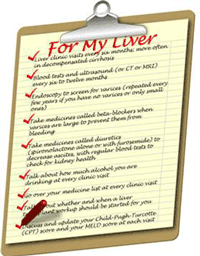 For My Liver
Liver clinic visits every six months, more often
in decompensated cirrhosis
Blood tests and ultrasound (or CT or MRI)
every six to twelve months
Endoscopy to screen for varices (repeated every
few years if you have no varices or only small
ones)
Take medicines called beta-blockers when
varices are large to prevent them from
bleeding
Take medicines called diuretics
(spironolactone alone or with furosemide) to
decrease ascites, with regular blood tests to
check for kidney health
Talk about how much alcohol you are
drinking at every clinic visit
Go over your medicine list at every clinic visit
whether and when a liver
workup should be started for you
Discuss and update your Child-Pugh-Turcotte
(CPT) score and your MELD score at each visit